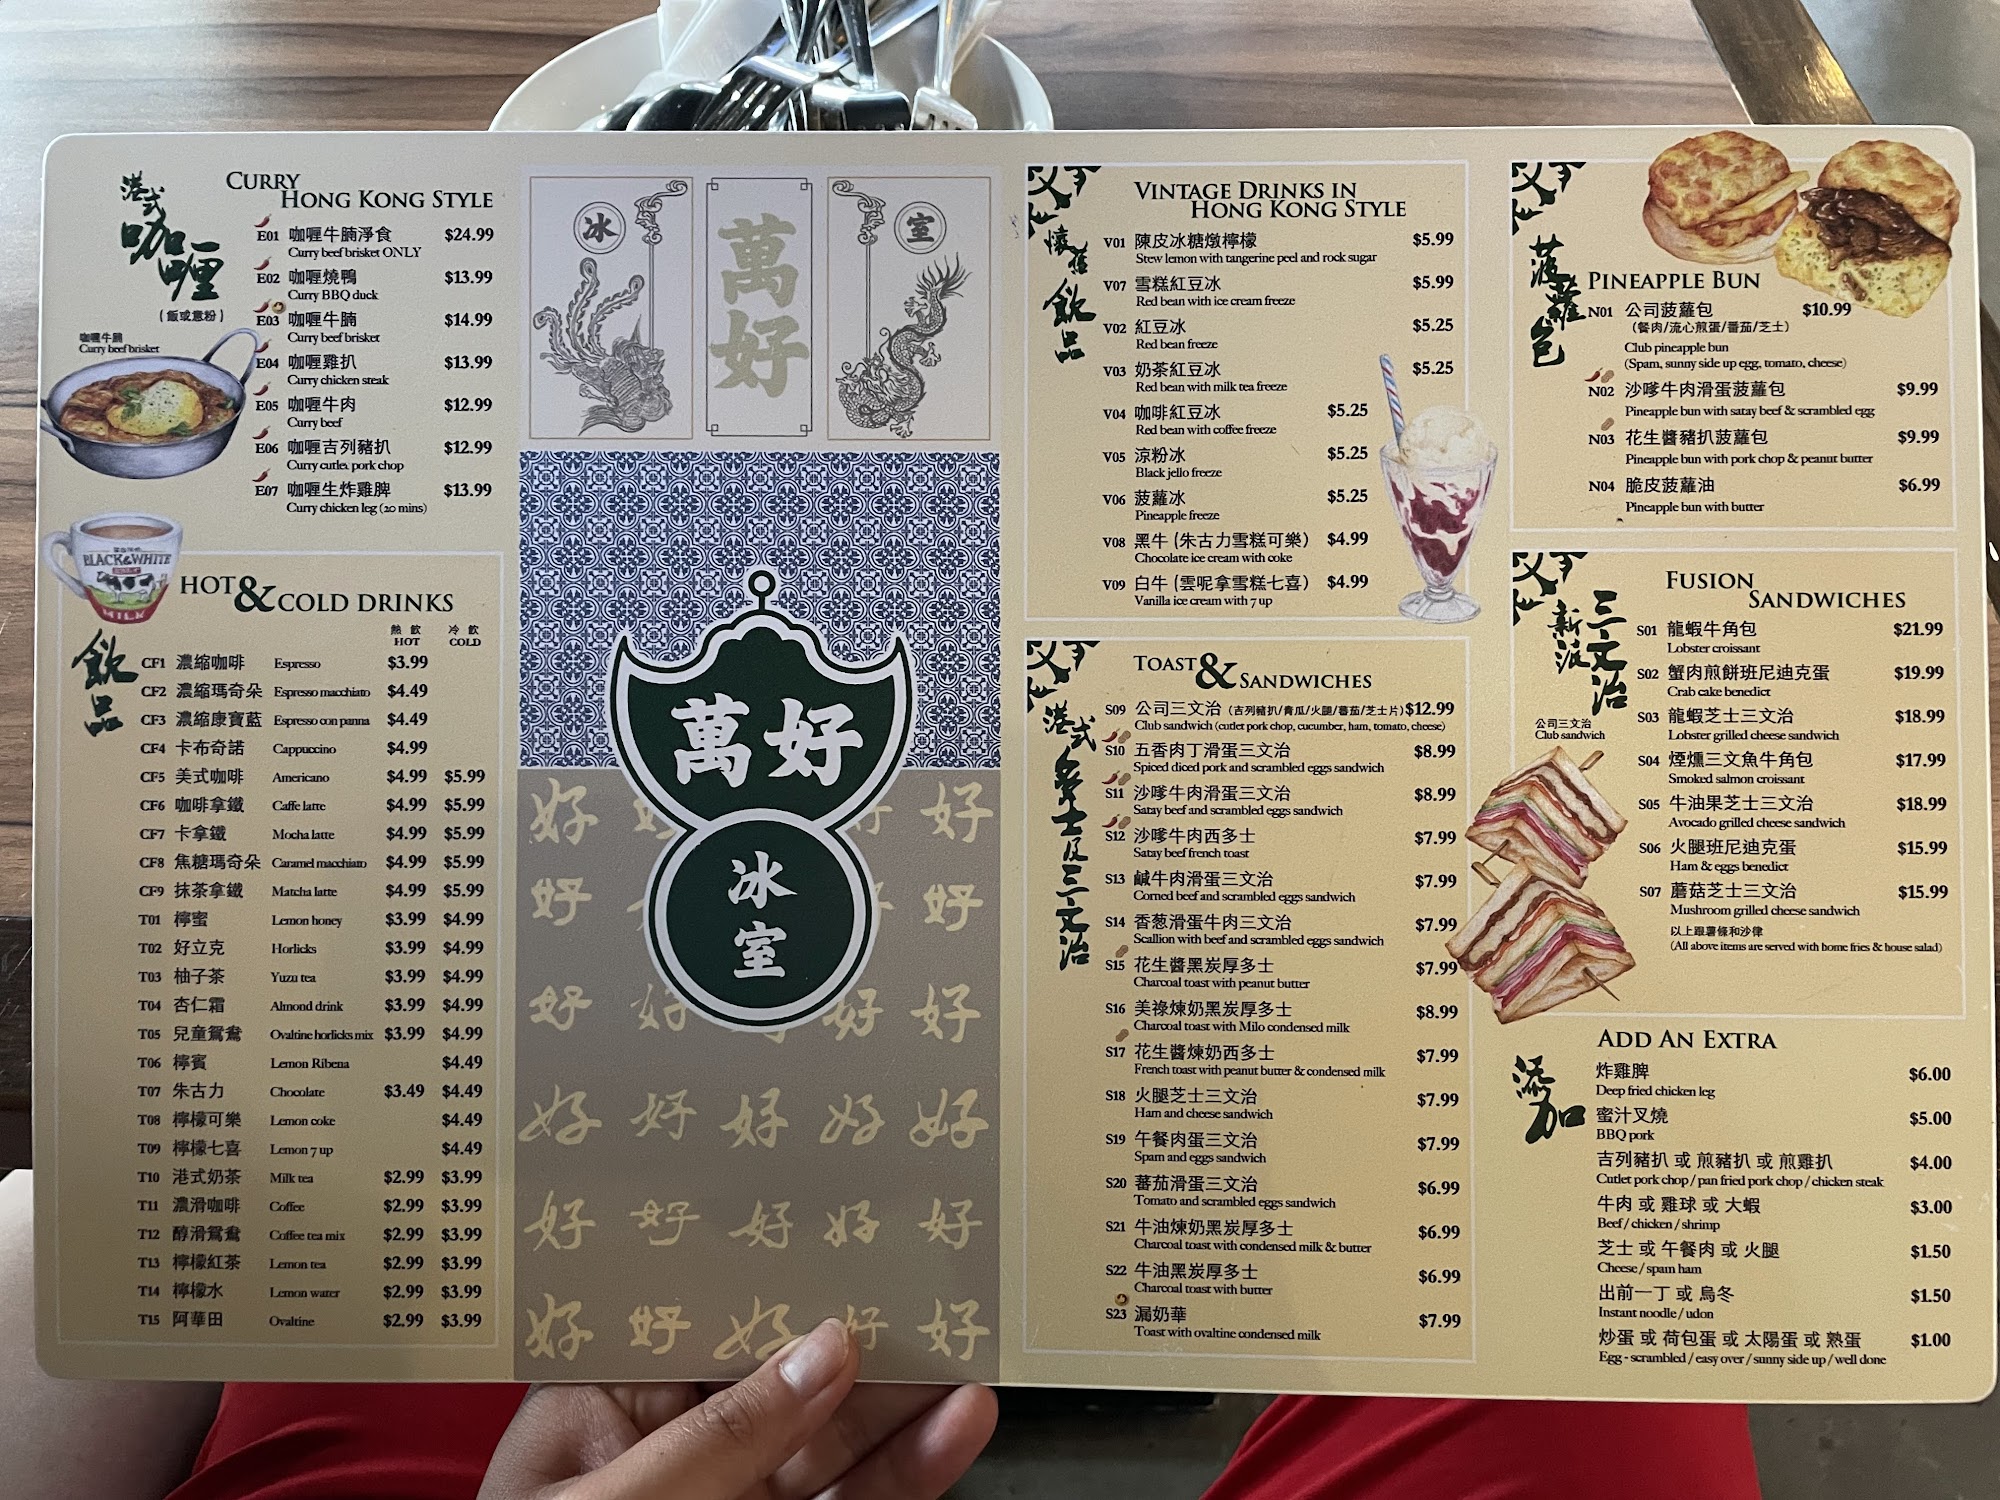 港式咖喱
(飯或意粉)
CURRY
HONG KONG STYLE
E01 咖喱牛腩淨食 $24.99
Curry beef brisket ONLY
E02 咖喱燒鴨 $13.99
Curry BBQ duck
E03 咖喱牛腩 $14.99
Curry beef brisket
E04 咖喱雞扒 $13.99
Curry chicken steak
E05 咖喱牛肉 $12.99
Curry beef
E06 咖喱吉列豬扒 $12.99
Curry cutlet pork chop
E07 咖喱生炸雞脾 $13.99
Curry chicken leg (20 mins)
咖喱牛腩
Curry beef brisket
BLACK&WHITE
MILK
飲品
HOT & COLD DRINKS
熱飲 冷飲
HOT COLD
CF1 濃縮咖啡 Espresso $3.99
CF2 濃縮瑪奇朵 Espresso macchiato $4.49
CF3 濃縮康寶藍 Espresso con panna $4.49
CF4 卡布奇諾 Cappuccino $4.99
CF5 美式咖啡 Americano $4.99 $5.99
CF6 咖啡拿鐵 Caffe latte $4.99 $5.99
CF7 卡拿鐵 Mocha latte $4.99 $5.99
CF8 焦糖瑪奇朵 Caramel macchiato $4.99 $5.99
CF9 抹茶拿鐵 Matcha latte $4.99 $5.99
T01 檸蜜 Lemon honey $3.99 $4.99
T02 好立克 Horlicks $3.99 $4.99
T03 柚子茶 Yuzu tea $3.99 $4.99
T04 杏仁霜 Almond drink $3.99 $4.99
T05 兒童鴛鴦 Ovaltine horlicks mix $3.99 $4.99
T06 檸賓 Lemon Ribena $4.49
T07 朱古力 Chocolate $3.49 $4.49
T08 檸檬可樂 Lemon coke $4.49
T09 檸檬七喜 Lemon 7 up $4.49
T10 港式奶茶 Milk tea $2.99 $3.99
T11 濃滑咖啡 Coffee $2.99 $3.99
T12 醇滑鴛鴦 Coffee tea mix $2.99 $3.99
T13 檸檬紅茶 Lemon tea $2.99 $3.99
T14 檸檬水 Lemon water $2.99 $3.99
T15 阿華田 Ovaltine $2.99 $3.99
冰 萬好 室
萬好
冰室
好 好 好
好 好
好 好 好 好
好 好 好 好 好
好 好 好 好 好
好 好 好 好 好
懷舊飲品
VINTAGE DRINKS IN
HONG KONG STYLE
V01 陳皮冰糖燉檸檬 $5.99
Stew lemon with tangerine peel and rock sugar
V07 雪糕紅豆冰 $5.99
Red bean with ice cream freeze
V02 紅豆冰 $5.25
Red bean freeze
V03 奶茶紅豆冰 $5.25
Red bean with milk tea freeze
V04 咖啡紅豆冰 $5.25
Red bean with coffee freeze
V05 涼粉冰 $5.25
Black jello freeze
V06 菠蘿冰 $5.25
Pineapple freeze
V08 黑牛 (朱古力雪糕可樂) $4.99
Chocolate ice cream with coke
V09 白牛 (雲呢拿雪糕七喜) $4.99
Vanilla ice cream with 7 up
港式多士及三文治
TOAST & SANDWICHES
S09 公司三文治 (吉列豬扒/青瓜/火腿/蕃茄/芝士片) $12.99
Club sandwich (cutlet pork chop, cucumber, ham, tomato, cheese)
S10 五香肉丁滑蛋三文治 $8.99
Spiced diced pork and scrambled eggs sandwich
S11 沙嗲牛肉滑蛋三文治 $8.99
Satay beef and scrambled eggs sandwich
S12 沙嗲牛肉西多士 $7.99
Satay beef french toast
S13 鹹牛肉滑蛋三文治 $7.99
Corned beef and scrambled eggs sandwich
S14 香葱滑蛋牛肉三文治 $7.99
Scallion with beef and scrambled eggs sandwich
S15 花生醬黑炭厚多士 $7.99
Charcoal toast with peanut butter
S16 美祿煉奶黑炭厚多士 $8.99
Charcoal toast with Milo condensed milk
S17 花生醬煉奶西多士 $7.99
French toast with peanut butter & condensed milk
S18 火腿芝士三文治 $7.99
Ham and cheese sandwich
S19 午餐肉蛋三文治 $7.99
Spam and eggs sandwich
S20 蕃茄滑蛋三文治 $6.99
Tomato and scrambled eggs sandwich
S21 牛油煉奶黑炭厚多士 $6.99
Charcoal toast with condensed milk & butter
S22 牛油黑炭厚多士 $6.99
Charcoal toast with butter
S23 漏奶華 $7.99
Toast with ovaltine condensed milk
菠蘿包
PINEAPPLE BUN
N01 公司菠蘿包 $10.99
(餐肉/流心煎蛋/番茄/芝士)
Club pineapple bun
(Spam, sunny side up egg, tomato, cheese)
N02 沙嗲牛肉滑蛋菠蘿包 $9.99
Pineapple bun with satay beef & scrambled egg
N03 花生醬豬扒菠蘿包 $9.99
Pineapple bun with pork chop & peanut butter
N04 脆皮菠蘿油 $6.99
Pineapple bun with butter
新派三文治
FUSION
SANDWICHES
S01 龍蝦牛角包 $21.99
Lobster croissant
S02 蟹肉煎餅班尼迪克蛋 $19.99
Crab cake benedict
S03 龍蝦芝士三文治 $18.99
Lobster grilled cheese sandwich
S04 煙燻三文魚牛角包 $17.99
Smoked salmon croissant
S05 牛油果芝士三文治 $18.99
Avocado grilled cheese sandwich
S06 火腿班尼迪克蛋 $15.99
Ham & eggs benedict
S07 蘑菇芝士三文治 $15.99
Mushroom grilled cheese sandwich
以上跟薯條和沙律
(All above items are served with home fries & house salad)
公司三文治
Club sandwich
添加
ADD AN EXTRA
炸雞脾 $6.00
Deep fried chicken leg
蜜汁叉燒 $5.00
BBQ pork
吉列豬扒 或 煎豬扒 或 煎雞扒 $4.00
Cutlet pork chop / pan fried pork chop / chicken steak
牛肉 或 雞球 或 大蝦 $3.00
Beef / chicken / shrimp
芝士 或 午餐肉 或 火腿 $1.50
Cheese / spam ham
出前一丁 或 烏冬 $1.50
Instant noodle / udon
炒蛋 或 荷包蛋 或 太陽蛋 或 熟蛋 $1.00
Egg - scrambled / easy over / sunny side up / well done